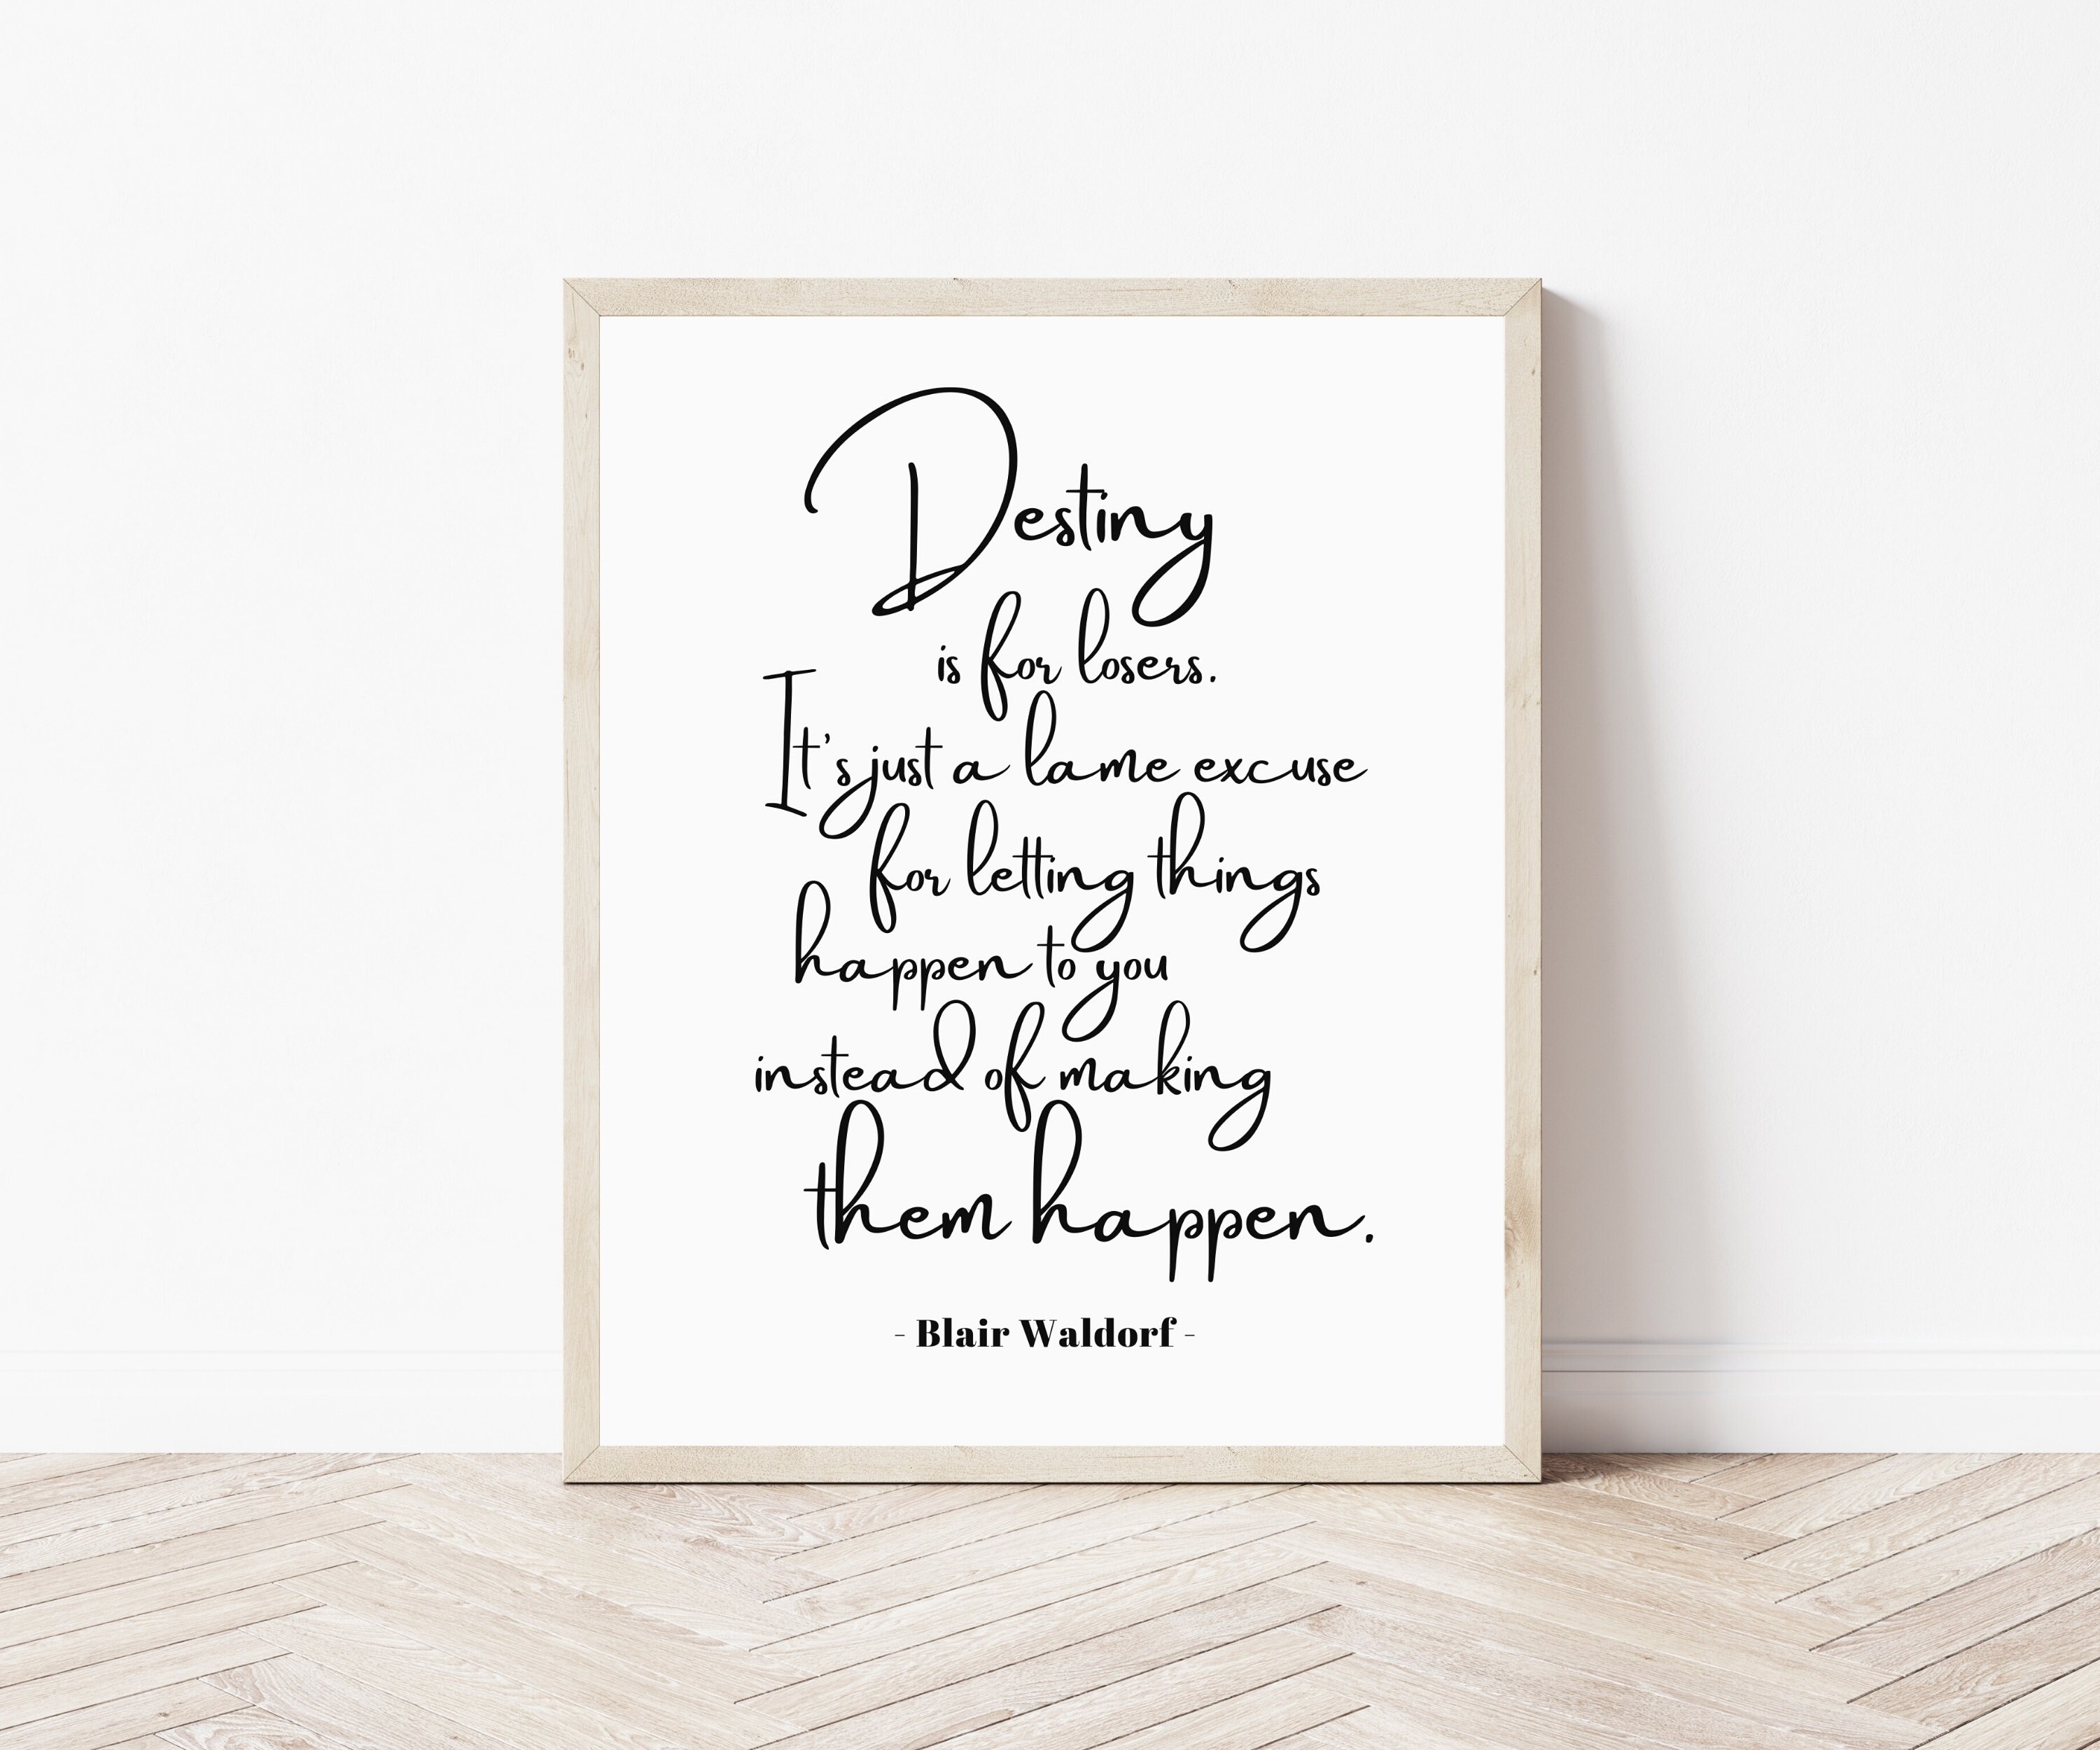 Destiny
is for losers.
It's just a lame excuse
for letting things
happen to you
instead of making
them happen.
- Blair Waldorf -